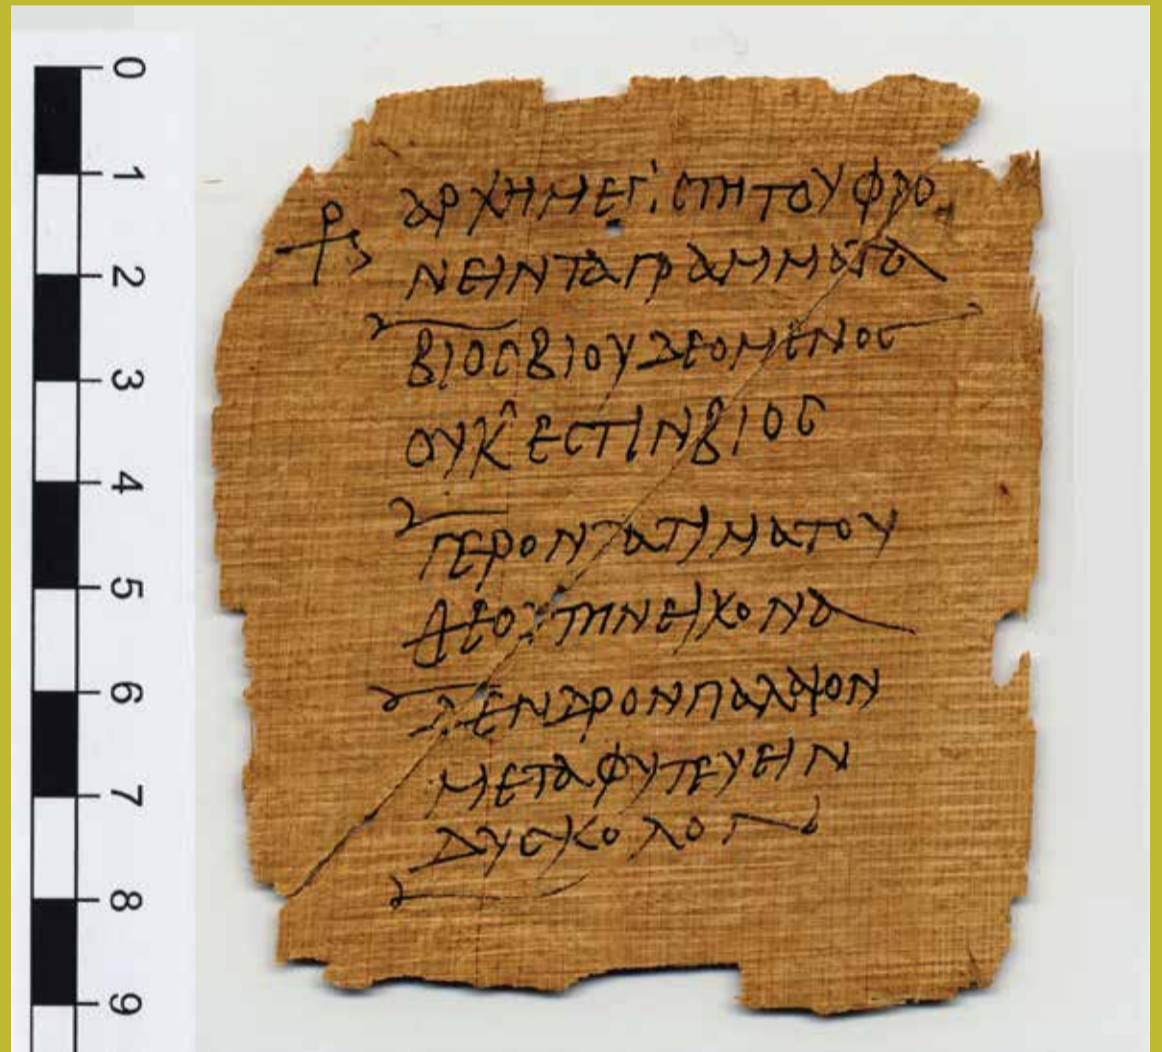 ⳨ ΑΡΧΗΜΕΓΙСΤΗΤΟΥΦΡΟ
ΝΕΙΝΤΑΓΡΑΜΜΑΤΑ
ΒΙΟСΒΙΟΥΔΕΟΜΕΝΟС
ΟΥΚΕСΤΙΝΒΙΟС
ΓΕΡΟΝΤΑΤΙΜΑΤΟΥ
ΘΕΟΥΤΗΝΕΙΚΟΝΑ
ΔΕΝΔΡΟΝΠΑΛΑΙΟΝ
ΜΕΤΑΦΥΤΕΥΕΙΝ
ΔΥСΚΟΛΟΝ
0
1
2
3
4
5
6
7
8
9